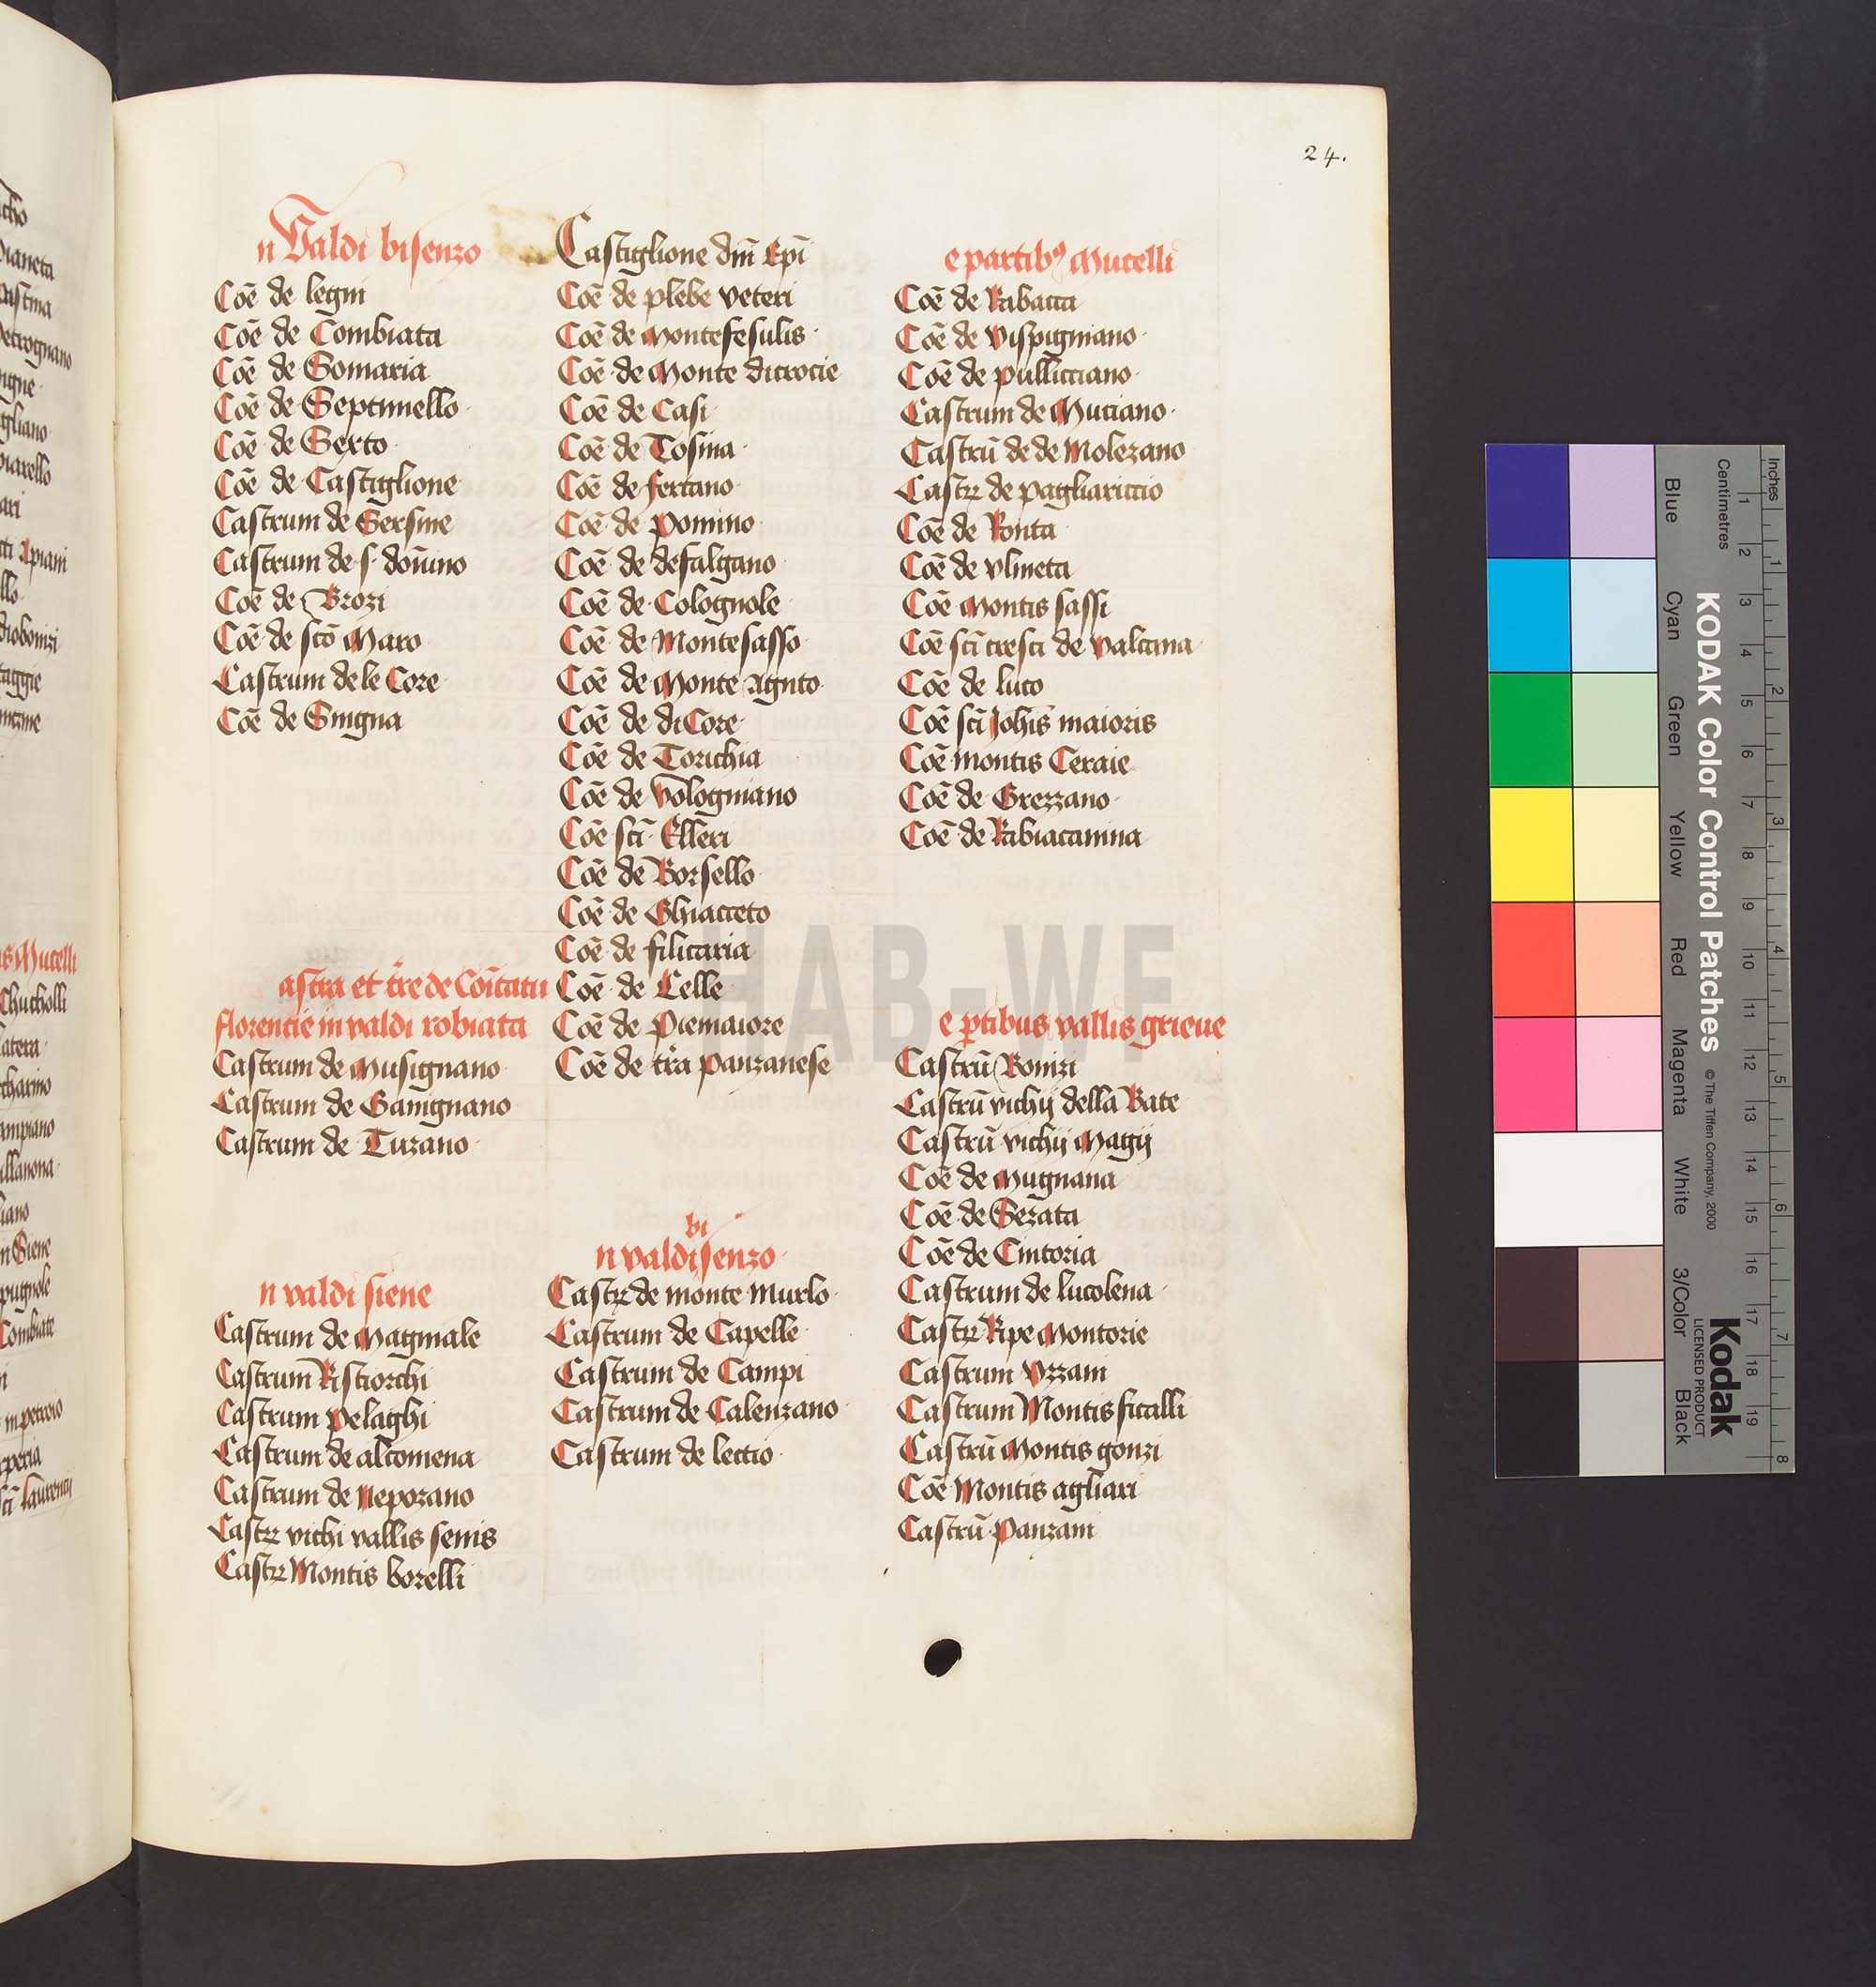 24.
n Valdi bisenzo
Coē de legni
Coē de Combiata
Coē de Somaria
Coē de Septimello
Coē de Sexto
Coē de Castiglione
Castrum de Sersine
Castrum de s. don̄ino
Coē de Brozi
Coē de sc̄o Maro
Castrum de le Core
Coē de Singna
astra et tr̄e de Com̄tatu
florentie in valdi robiata
Castrum de Musignano
Castrum de Ganignano
Castrum de Tuzano
n valdi siene
Castrum de Magniale
Castrum Ristiorchi
Castrum Pelaghi
Castrum de altomena
Castrum de Nepozano
Castꝝ vichi vallis senis
Castꝝ Montis borelli
Castiglione dn̄i Epī
Coē de plebe veteri
Coē de Montefesulis
Coē de Monte dicrocie
Coē de Casi
Coē de Tosina
Coē de fertano
Coē de Pomino
Coē de defalgano
Coē de Colognole
Coē de Montesasso
Coē de Monte Agnto
Coē de diCore
Coē de Torichia
Coē de Vologniano
Coē sc̄i Elleri
Coē de Borsello
Coē de Ghiacceto
Coē de filicaria
Coē de Celle
Coē de Piemaiore
Coē de tr̄a panzanese
bi
n valdisenzo
Castꝝ de monte Murlo
Castrum de Capelle
Castrum de Campi
Castrum de Calenzano
Castrum de lectio
e partibꝰ Mucelli
Coē de Rabacta
Coē de Vispigniano
Coē de pullicciano
Castrum de Muciano
Castrū de de Molezano
Castꝝ de pagliariccio
Coē de Ronta
Coē de vlmeta
Coē Montis sassi
Coē sc̄i cresci de Valcana
Coē de luco
Coē sc̄i Joh̄is maioris
Coē montis Ceraie
Coē de Grezzano
Coē de Rabiacanina
e ꝑtibus vallis grieue
Castrū Bonizi
Castrū vichij della Bate
Castrū vichij Magij
Coē de Mugnana
Coē de Sezata
Coē de Cintoria
Castrum de lucolena
Castꝝ Ripe Montorie
Castrum Vzzani
Castrum Montisficalli
Castrū Montis gonzi
Coē Montis agliari
Castrū Panzani
HAB-WF
KODAK Color Control Patches
© The Tiffen Company, 2000
Kodak
LICENSED PRODUCT
Inches
Centimetres
1 2 3 4 5 6 7 8 9 10 11 12 13 14 15 16 17 18 19
1 2 3 4 5 6 7 8
Blue
Cyan
Green
Yellow
Red
Magenta
White
3/Color
Black